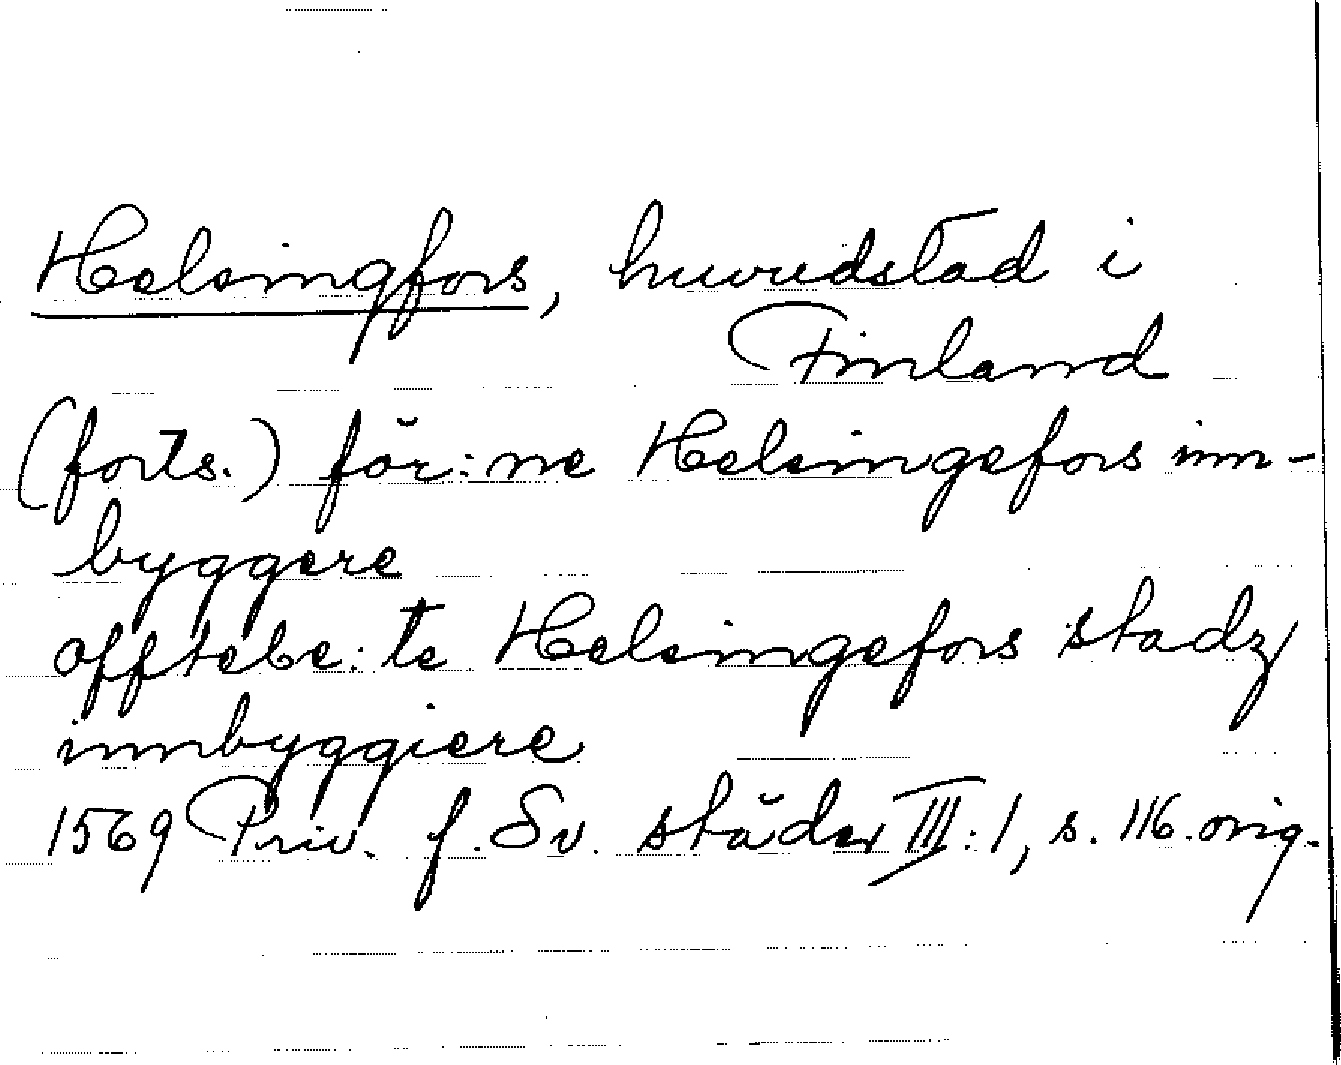 Helsingfors, huvudstad i
Finland
(forts.) för:ne Helsingefors inn-
byggere
offtebe:te Helsingefors stadz
innbyggiere
1569 Priv. f. Sv. städer III:1, s. 116. orig.